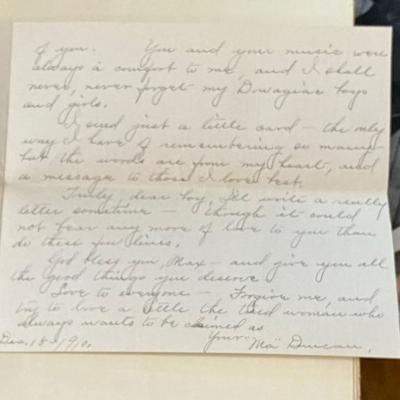 of you. You and your music were
always a comfort to me, and I shall
never, never forget my Dowagiac boys
and girls.
I send just a little card – the only
way I have of remembering so many –
but the words are from my heart, and
a message to those I love best.
Truly dear boy, I'll write a really
letter sometime – though it could
not bear any more of love to you than
do these few lines.
God bless you, Max – and give you all
the good things you deserve.
Love to everyone – Forgive me, and
try to love a little the tired woman who
always wants to be claimed as
Your "Ma" Duncan.
Dec. 18 - 1910.